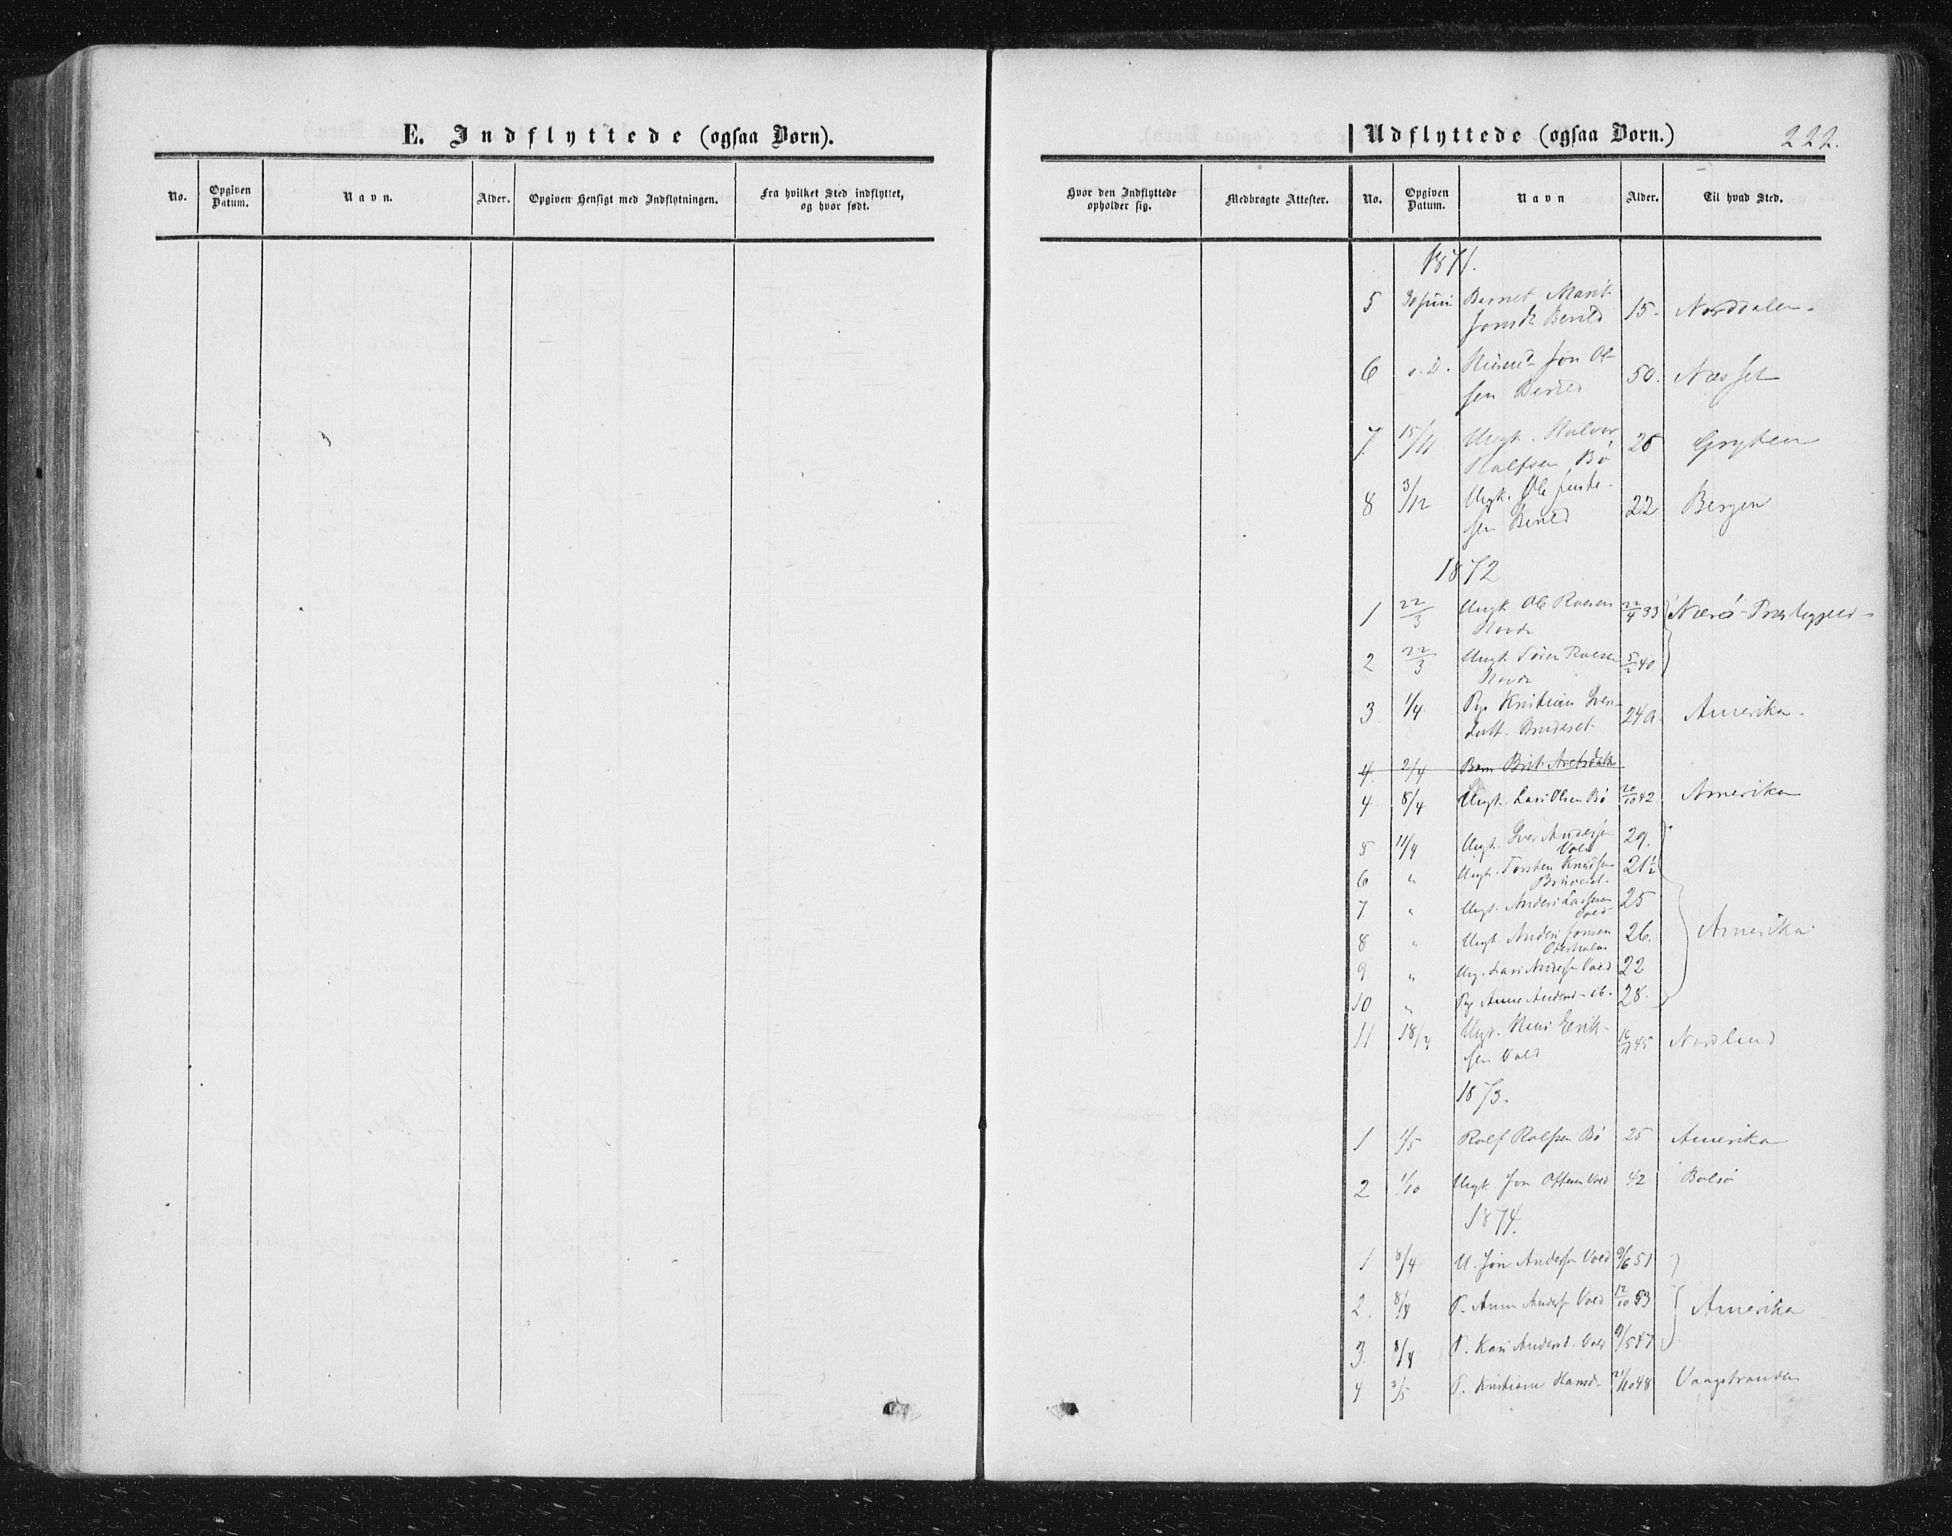 E. Indflyttede (ogsaa Børn).
No.
Opgiven Datum.
Navn.
Alder.
Opgiven Hensigt med Indflytningen.
Fra hvilket Sted indflyttet, og hvor født.
Udflyttede (ogsaa Børn.)
222.
Hvor den Indflyttede opholder sig.
Medbragte Attester.
No.
Opgiven Datum.
Navn
Alder.
Til hvad Sted.
1871.
5 30 Juni Barnet Marit 15 Norddalen
Jonsdt Berild
6 s.D. Jon Ol- 50. Næsset
sen Berild
7. 15/11 Ungk. Halvor 26 Grytten
Rolfsen Bø
8 3/12 Ungk. Ole 22 Bergen
sen Berild
1872
1 22/3 Ungk Ole 22/4 33 Nærø Præstegjeld
Hovde
2 22/3 Ungk 5/2 40
Hovde
3. 1/4 Pige Kristian Iver- 24 a. Amerika.
datt.
4. 2/4 Barn Brit
4 8/4 Ungk. Lars Olsen Bø 20/10 42. Amerika
5 11/4 Ungk. Iver Andersen 29.
Vold
6 " Ungk. Torsten Knudsen 21½
7. " Ungk. Anders Larsen 25
Vold
8 " Ungk. Anders Jonsen 26. Amerika
9 " Ung. Lars Andersen Vold 22
10 " Pge Anne Andersd. ib. 28.
11 18/4 Ungk. Hans Erik- 45 Nordland
sen Vold
1873.
1 1/5 Rolf Rolfsen Bø 25 Amerika
2 1/10 Ungk Jon Vold 42 Bolsø
1874.
1 8/4 U. Jon Andersen Vold 9/6 51
2. 8/4 P. Anne Andersd Vold 12/10 53 Amerika
3. 8/4 P. Kari Andersd. Vold 9/5 47
4 3/5 P. Kristiane Hansd. 21/10 48 Vaagstranden